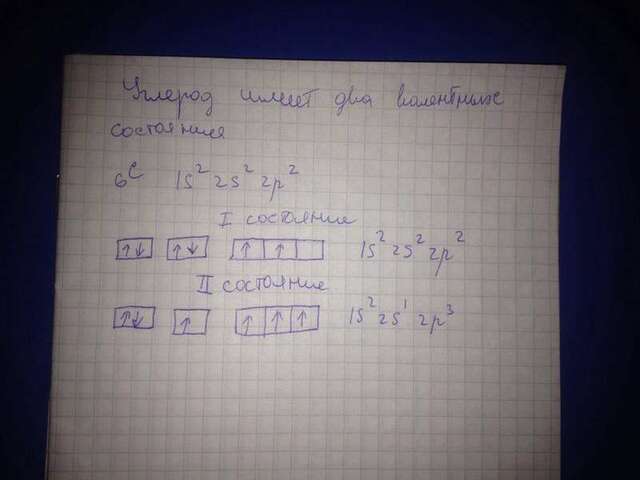 Углерод имеет два валентных
состояния
₆C 1s² 2s² 2p²
I состояние
↑↓ ↑↓ ↑ ↑ 1s² 2s² 2p²
II состояние
↑↓ ↑ ↑ ↑ ↑ 1s² 2s¹ 2p³